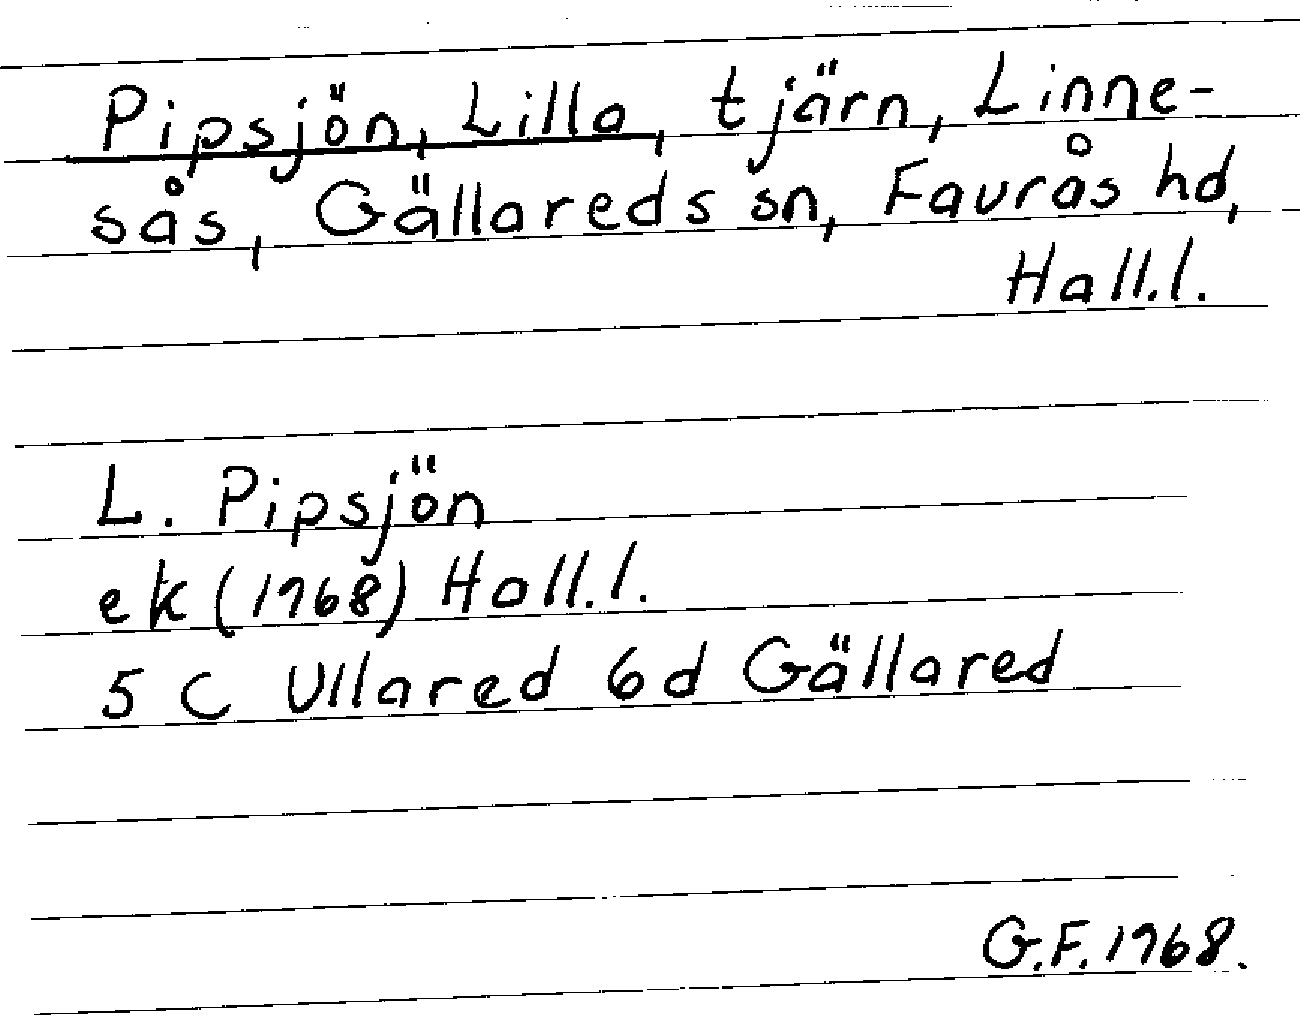 Pipsjön, Lilla, tjärn, Linne-
sås, Gällareds sn, Faurås hd,
Hall.l.
L. Pipsjön
ek (1968) Hall.l.
5 C Ullared 6d Gällared
G.F. 1968.